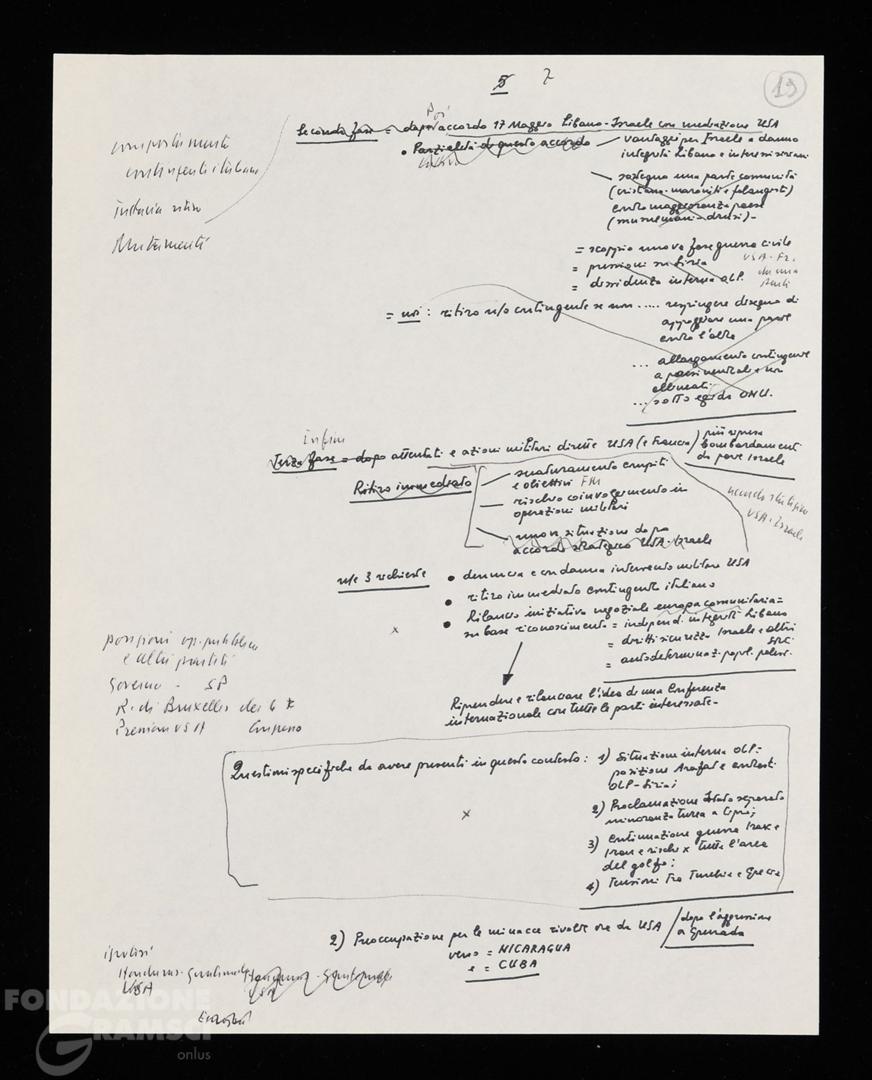 5 7
19
Poi
Seconda fase = dopo accordo 17 Maggio Libano-Israele con mediazione USA
• Parzialità di questo accordo — vantaggi per Israele a danno
integrità Libano e interessi siriani
comportamento
contingenti italiano
— sostegno una parte comunità
(cristiano-maroniti e falangisti)
contro maggioranza paese
(musulmani-drusi)-
ritiro
Mutamenti
= scoppio nuova fase guerra civile
= pressioni su Siria
USA-Fr.
= dissidenza interna OLP.
= noi: ritiro n/o contingente se non ..... respingere disegno di
appoggiare una parte
contro l'altra
... allargamento contingente
a paesi neutrali e non
allineati
... sotto egida ONU.
Infine
Terza fase = dopo attentati e azioni militari dirette USA (e Francia) più ripresa
bombardamenti
da parte Israele
Ritiro immediato
— snaturamento compiti
e obiettivi FM
— rischio coinvolgimento in
operazioni militari
— nuova situazione dopo
accordo strategico USA-Israele
USA-Israele
n/e 3 richieste
• denuncia e condanna intervento militare USA
• ritiro immediato contingente italiano
• Rilancio iniziativa negoziale europa comunitaria =
su base riconoscimento = independ. integrità Libano
= diritti sicurezza Israele e altri
= autodeterminaz. popol. palest.
x
posizioni
e altri partiti
Governo - SP
R. di Bruxelles dei 6
Riprendere e rilanciare l'idea di una Conferenza
internazionale con tutte le parti interessate-
Questioni specifiche da avere presenti in questo contesto: 1) Situazione interna OLP-
posizione Arafat e contrasti
OLP-Siria;
x
2) Proclamazione Stato separato
minoranza turca a Cipro;
3) Continuazione guerra Irak e
Iran e rischi x tutta l'area
del golfo;
4) Tensioni tra Turchia e Grecia
2) Preoccupazione per le minacce rivolte ora da USA / dopo l'aggressione
a Grenada
verso = NICARAGUA
e = CUBA
ipotesi
Honduras-Guatemala
USA
FONDAZIONE
GRAMSCI
onlus